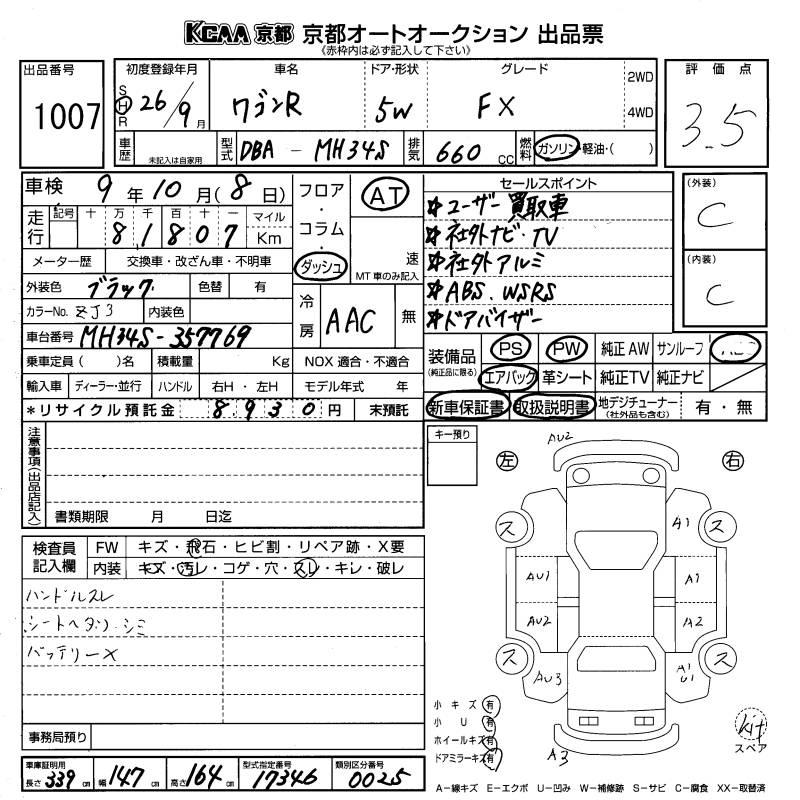 KCAA 京都 京都オートオークション 出品票
《赤枠内は必ず記入して下さい》
出品番号
1007
初度登録年月 車名 ドア・形状 グレード
S H R 26/9月 ワゴンR 5W FX 2WD 4WD
車歴 未記入は自家用 型式 DBA - MH34S 排気 660 CC 燃料 ガソリン・軽油・( )
評価点
3.5
車検 9年10月(8日)
走行 記号 十 万 千 百 十 一 マイル
8 1 8 0 7 Km
メーター歴 交換車・改ざん車・不明車
外装色 ブラック 色替 有
カラーNo. ZJ3 内装色
車台番号 MH34S-357769
乗車定員( )名 積載量 Kg NOX 適合・不適合
輸入車 ディーラー・並行 ハンドル 右H・左H モデル年式 年
*リサイクル預託金 8,930円 未預託
フロア・コラム・ダッシュ
AT
速
MT車のみ記入
冷房 AAC 無
セールスポイント
☆ユーザー買取車
☆社外ナビ・TV
☆社外アルミ
☆ABS、WSRS
☆ドアバイザー
(外装)
C
(内装)
C
装備品 (純正品に限る)
PS PW 純正AW サンルーフ
エアバック 革シート 純正TV 純正ナビ
新車保証書 取扱説明書 地デジチューナー(社外品も含む) 有・無
注意事項(出品店記入)
書類期限 月 日迄
キー預り
検査員記入欄
FW キズ・飛石・ヒビ割・リペア跡・X要
内装 キズ・汚レ・コゲ・穴・スレ・キレ・破レ
ハンドルスレ
シートヘタリ・シミ
バッテリーX
事務局預り
車庫証明用
長さ 339cm 幅 147cm 高さ 164cm
型式指定番号 17346
類別区分番号 0025
左 右
AU2
ス A1 ス
AU1 A1
AU2 A2
ス ス
AU3 A1 U1
A3
小キズ 有
小U 有
ホイールキズ 有
ドアミラーキズ 有
kit
スペア
A―線キズ E―エクボ U―凹み W―補修跡 S―サビ C―腐食 XX―取替済